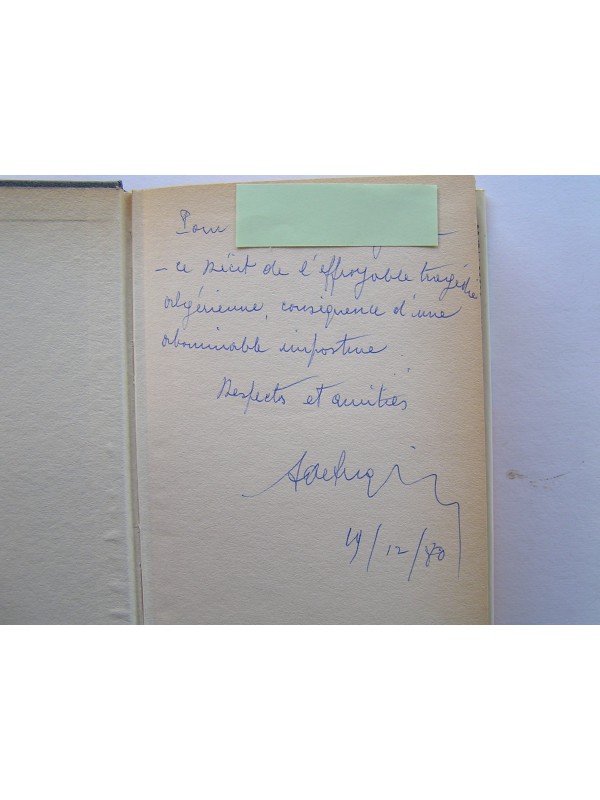 Pour
- ce récit de l'effroyable tragédie
algérienne, conséquence d'une
abominable imposture.
Respects et amitiés
19/12/80